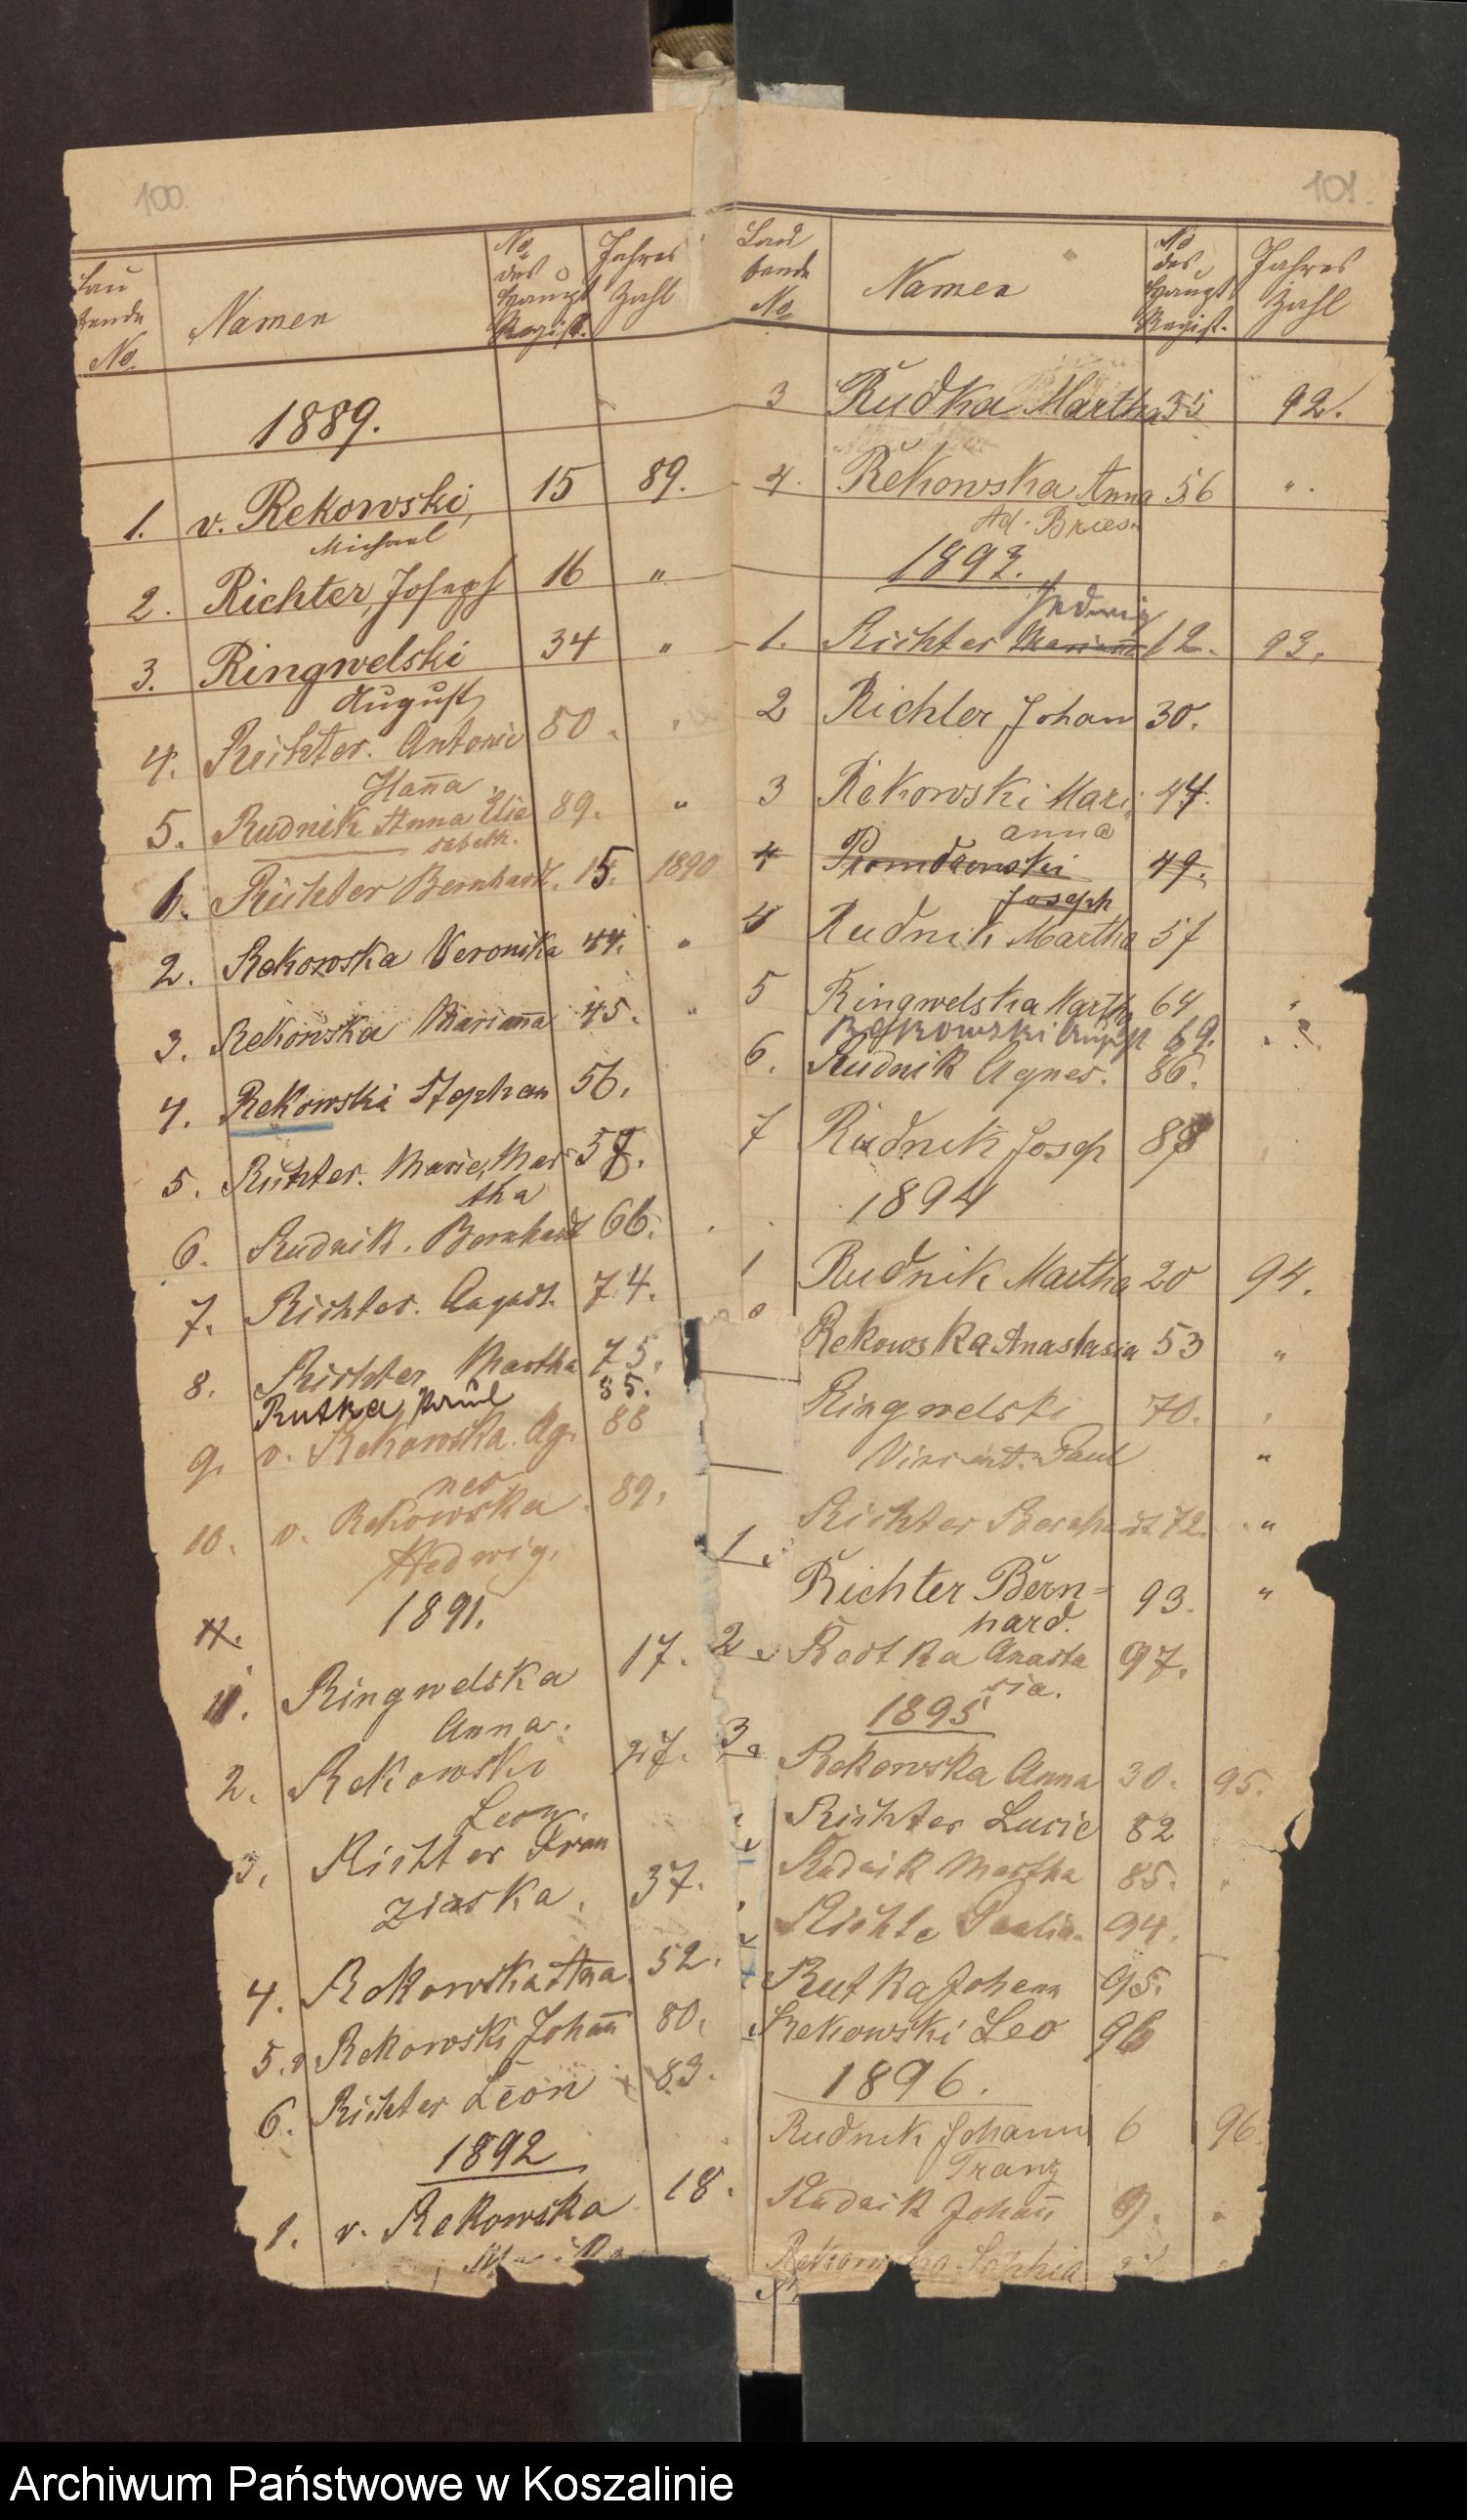 100.
Lau
fende
No
Namen
No
des
Haupt
Regist.
Jahres
Zahl
1889.
1. v. Rekowski, 15 89.
Michael
2. Richter, Joseph 16 "
3. Ringwelski 34 "
August
4. Richter. Antonie 80.
Hanna
5. Rudnik Anna Elie 89. "
sabeth.
1. Richter Bernhardt. 15. 1890
2. Rekowska Veronika 44. "
3. Rekowska Marianna 45. "
4. Rekowski Stephan 56.
5. Richter. Marie, Mar 57.
tha
6. Rudnik. Bernhardt 66.
7. Richter. August. 74.
8. Richter Martha 75.
Rutka Paul 85.
9. v. Rekowska. Ag. 88
nes
10. v. Rekowska. 89.
Hedwig.
1891.
11.
1. Ringwelska 17.
Anna.
2. Rekowski 27.
Leon.
3. Richter Fran
ziska. 37.
4. Rekowska Anna. 52.
5. Rekowski Johann 80.
6. Richter Leon 83.
1892
1. v. Rekowska 18.
101.
Lau
fende
No
Namen
No
des
Haupt
Regist.
Jahres
Zahl
3 Rudka Martha 35 92.
4. Rekowska Anna 56 ".
Ad. Briesn
1893.
Hedwig
1. Richter Marianna 12. 93.
2 Richter Johann 30.
3 Rekowski Mari 44.
anna
4 49.
Joseph
4 Rudnik Martha 57
5 Ringwelska Martha 64 "
Rekowski August 69.
6. Rudnik Agnes. 86.
7 Rudnik Josep 88
1894
1 Rudnik Martha 20 94.
Rekowska Anastasia 53 "
Ringwelski 70. "
Vincent. Paul "
Richter Bernhardt 72. "
1.
Richter Bern= 93. "
hard.
2. Rostka Anasta 97.
sia.
1895
3. Rekowska Anna 30. 95.
Richter Lucie 82
Rudnik Martha 85. "
Richte Paulin. 94.
Rutka Johann 95.
Rekowski Leo 96
1896.
Rudnik Johann 6 96
Franz
Rudnik Johann 9. "
Sophia
Archiwum Państwowe w Koszalinie